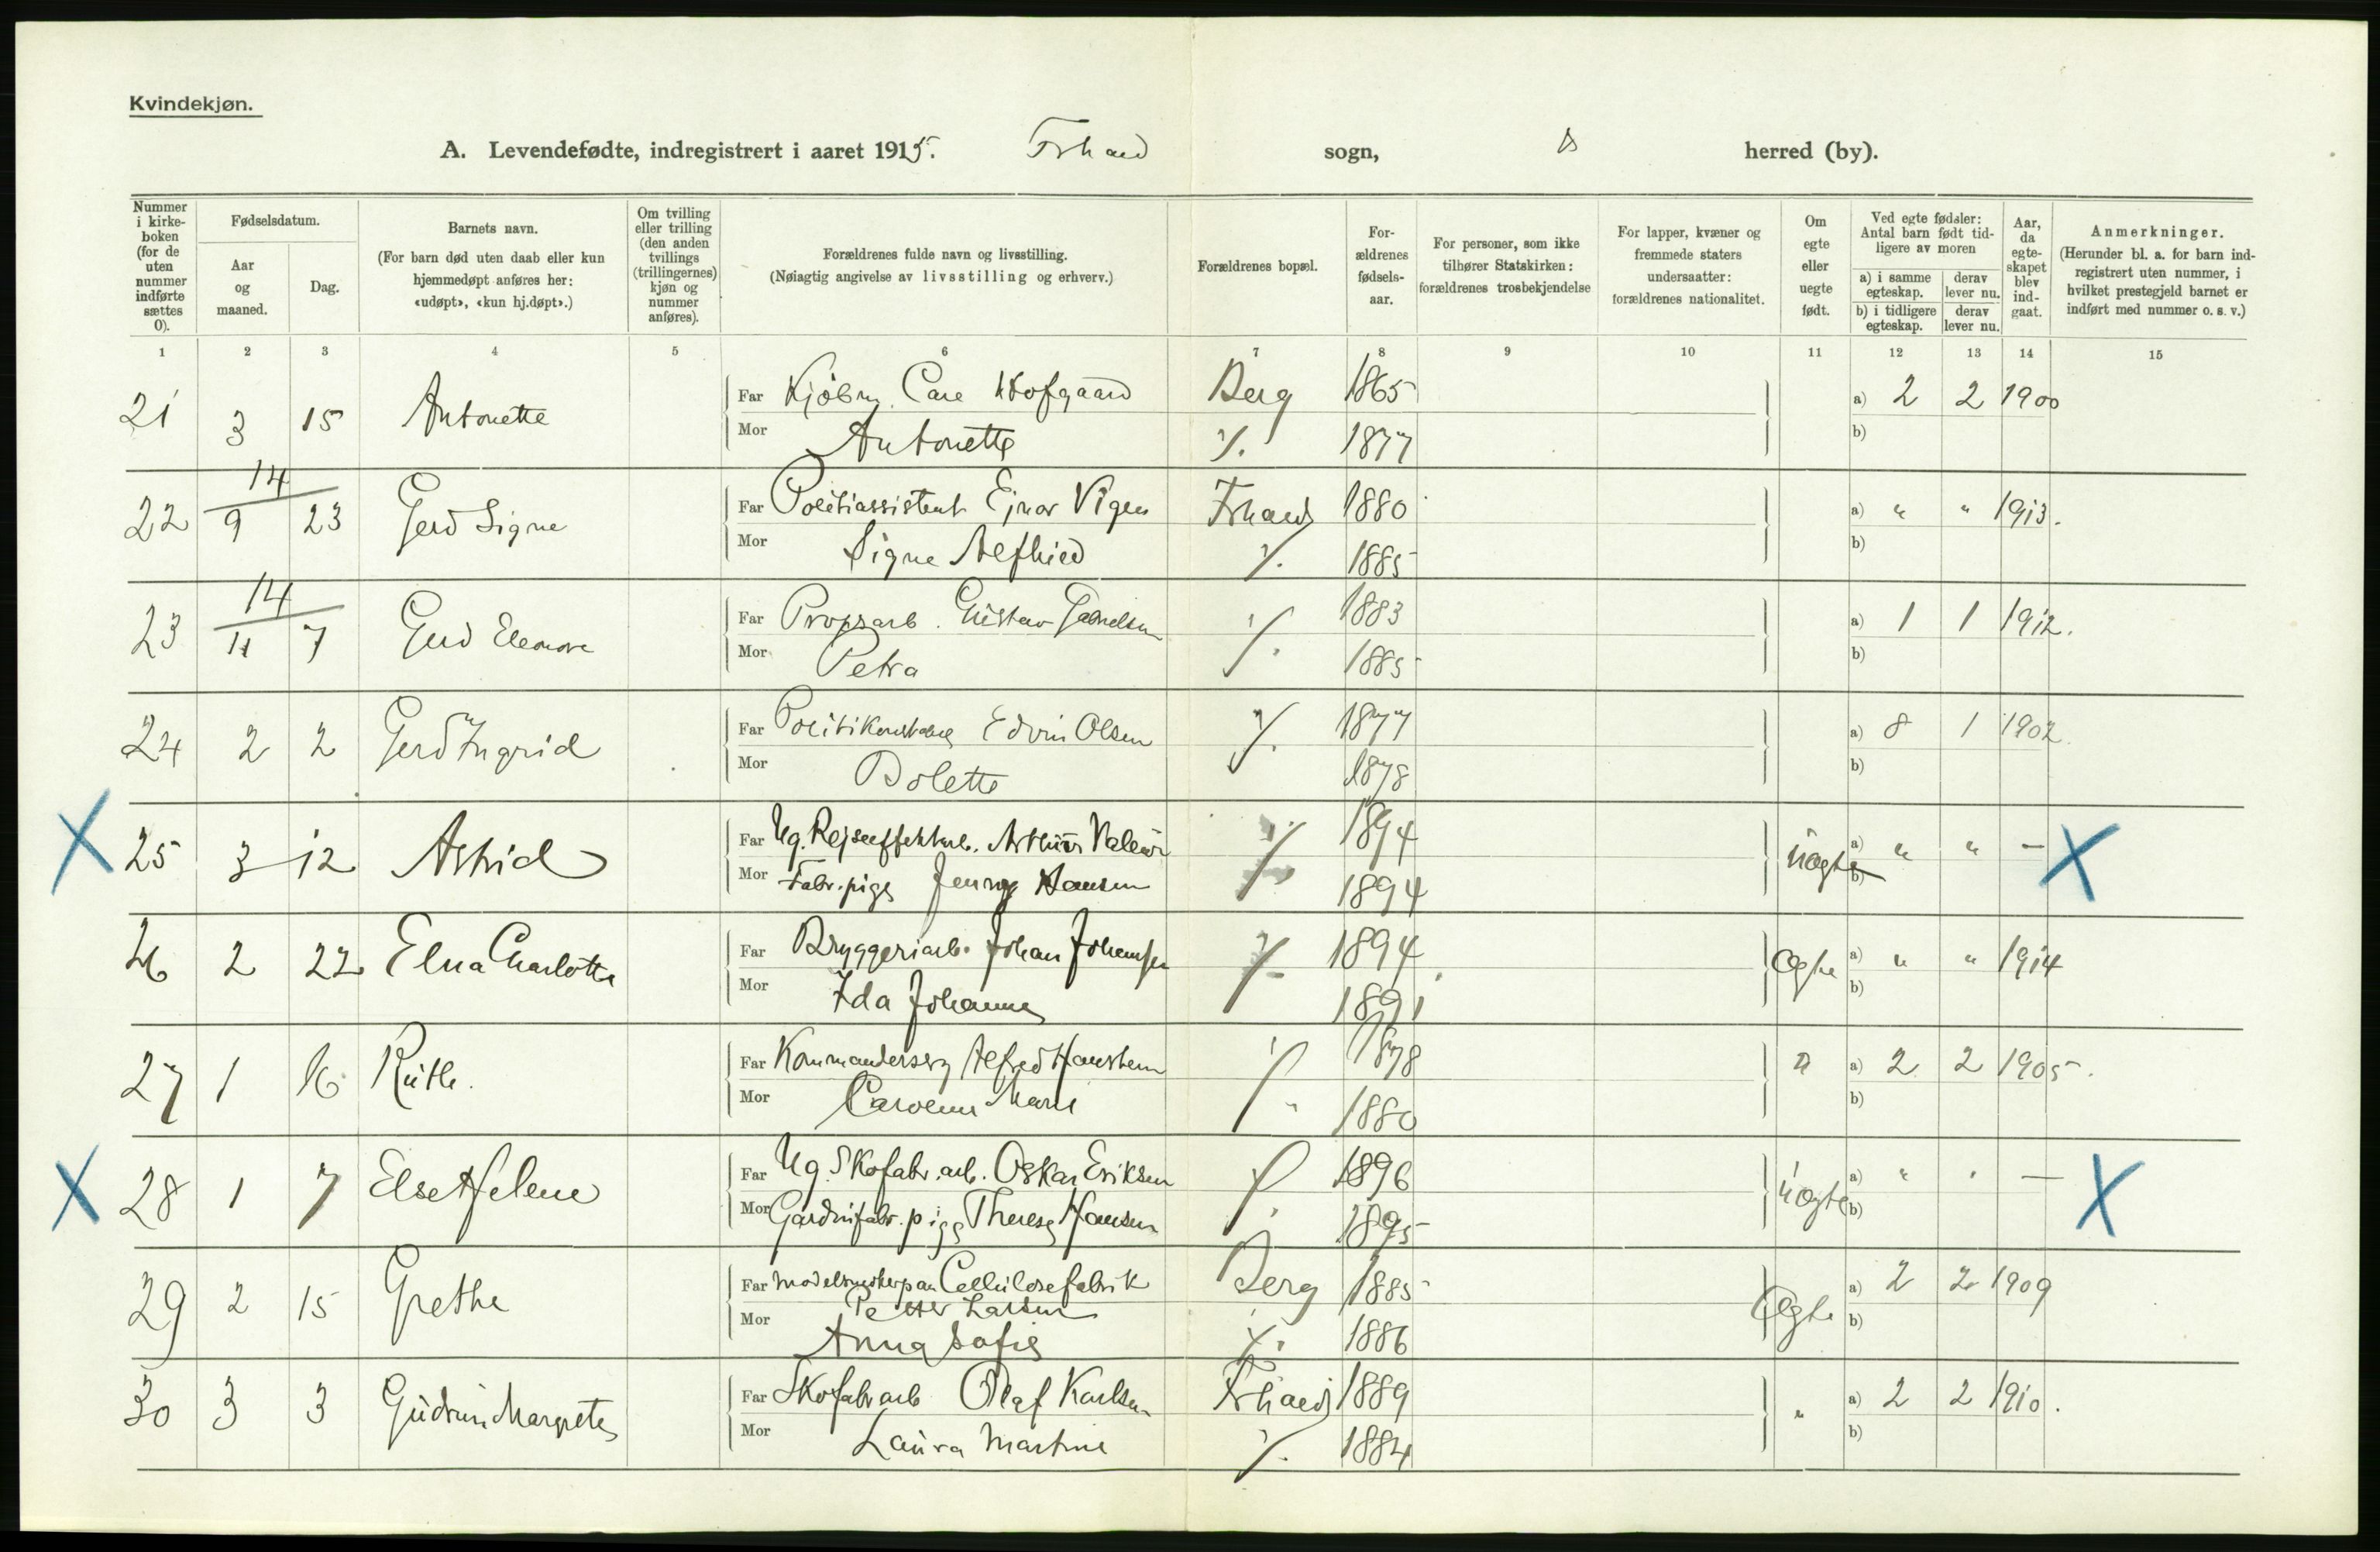 Kvindekjøn.
A. Levendefødte, indregistrert i aaret 1915. Frhald sogn, herred (by).
Nummer i kirkeboken (for de uten nummer indførte sættes 0).
Fødselsdatum.
Aar og maaned.
Dag.
Barnets navn.
(For barn død uten daab eller kun hjemmedøpt anføres her: «udøpt», «kun hj.døpt».)
Om tvilling eller trilling (den anden tvillings (trillingernes) kjøn og nummer anføres).
Forældrenes fulde navn og livsstilling.
(Nøiagtig angivelse av livsstilling og erhverv.)
Forældrenes bopæl.
Forældrenes fødselsaar.
For personer, som ikke tilhører Statskirken: forældrenes trosbekjendelse
For lapper, kvæner og fremmede staters undersaatter: forældrenes nationalitet.
Om egte eller uegte født.
Ved egte fødsler: Antal barn født tidligere av moren
a) i samme egteskap.
derav lever nu.
b) i tidligere egteskap.
derav lever nu.
Aar, da egteskapet blev indgaat.
Anmerkninger.
(Herunder bl. a. for barn indregistrert uten nummer, i hvilket prestegjeld barnet er indført med nummer o. s. v.)
1 2 3 4 5 6 7 8 9 10 11 12 13 14 15
21 3 15 Antonette Far Kjøbm. Carl Hofgaard Berg 1865 a) 2 2 1900
Mor Antonette ". 1877 b)
22 14/9 23 Gerd Signe Far Politiassistent Ejnar Vigen Frhald 1880 a) " " 1913.
Mor Signe Alfhild ". 1885 b)
23 14/11 7 Gerd Eleonore Far Propsarb. Gustav ". 1883 a) 1 1 1912.
Mor Petra 1885 b)
24 2 2 Gerd Ingrid Far Politikonstabel Edvin Olsen ". 1877 a) 8 1 1902.
Mor Bolette 1878 b)
X 25 3 12 Astrid Far Ug. Rejseeffektarb. Arthur ". 1894 uægte a) " " — X
Mor Fabr.pige Jenny Hansen 1894 b)
26 2 22 Elna Charlotte Far Bryggeriarb. Johan Johansen " 1894 Ægte a) " " 1914
Mor Ida Johanne 1891 b)
27 1 16 Ruth. Far Alfred " 1878 " a) 2 2 1905.
Mor Marie 1880 b)
X 28 1 7 Else Helene Far Ug. Skofabr.arb. Oskar Eriksen ". 1896 uægte a) " " — X
Mor Gardinfabr.pige Therese Hansen 1895 b)
29 2 15 Grethe Far Modelsnekker paa Cellulosefabrik Berg 1885 Ægte a) 2 2 1909
Petter Larsen
Mor Anna Sofie ". 1886 b)
30 3 3 Gudrun Margrete Far Skofabrarb Olaf Karlsen Frhald 1889 " a) 2 2 1910.
Mor Laura Martine ". 1884 b)